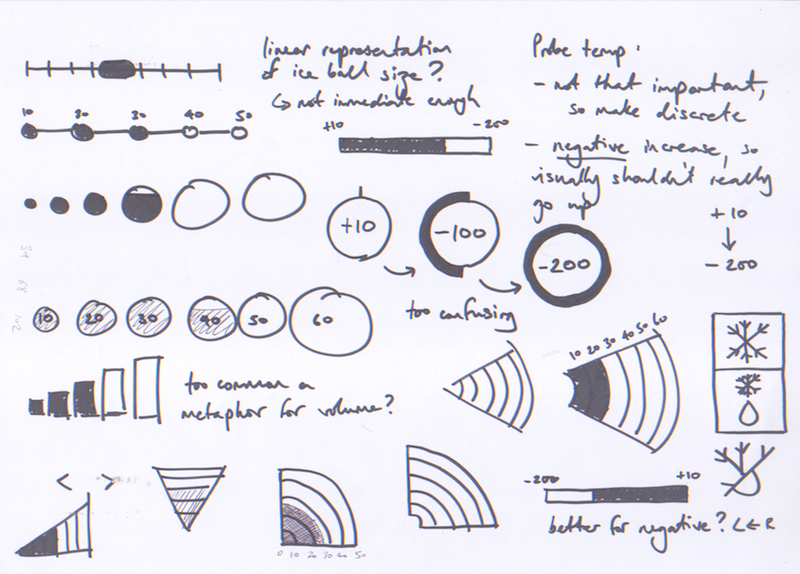 linear representation
of ice ball size?
↳ not immediate enough
Probe temp:
- not that important,
so make discrete
- negative increase, so
visually shouldn't really
go up
+10
↓
-200
10 20 30 40 50
+10 -200
+10
-100
-200
too confusing
10 20 30 40 50 60
too common a
metaphor for volume?
10 20 30 40 50 60
< >
0 10 20 30 40 50
-200 +10
better for negative? L←R